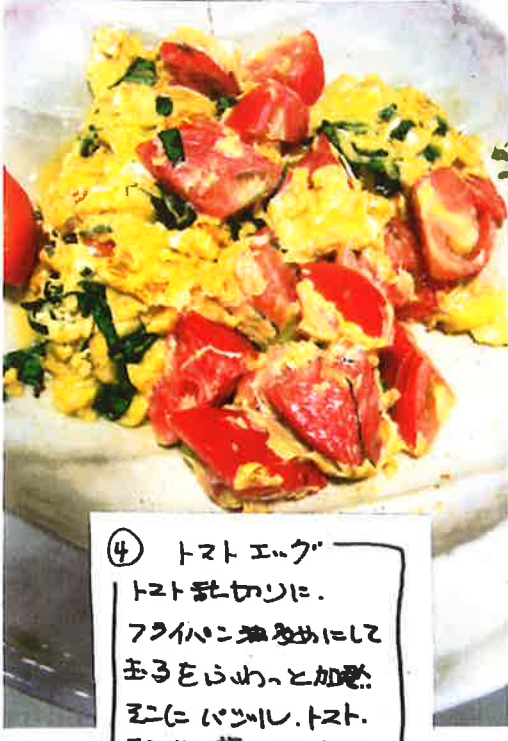 ④ トマトエッグ
トマト乱切りに.
フライパン油多めにして
玉子をふわっと加熱
そこにバジル.トマト.